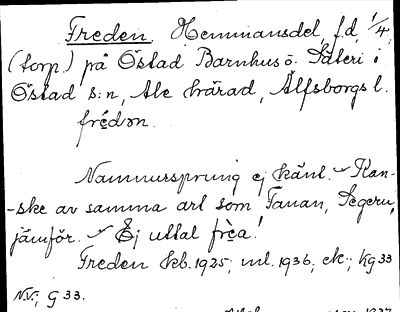 Freden. Hemmansdel, f.d. 1/4
(torp) på Östad Barnhus ö. Säteri i
Östad s:n, Ale härad, Älfsborgs l.
frédɘn.
Namnursprung ej känt. Kan-
-ske av samma art som Fanan, Segern,
jämför. Ej uttal frèa!
Freden kb. 1925; ml. 1936; ek; kg 33
N.V.; G 33.